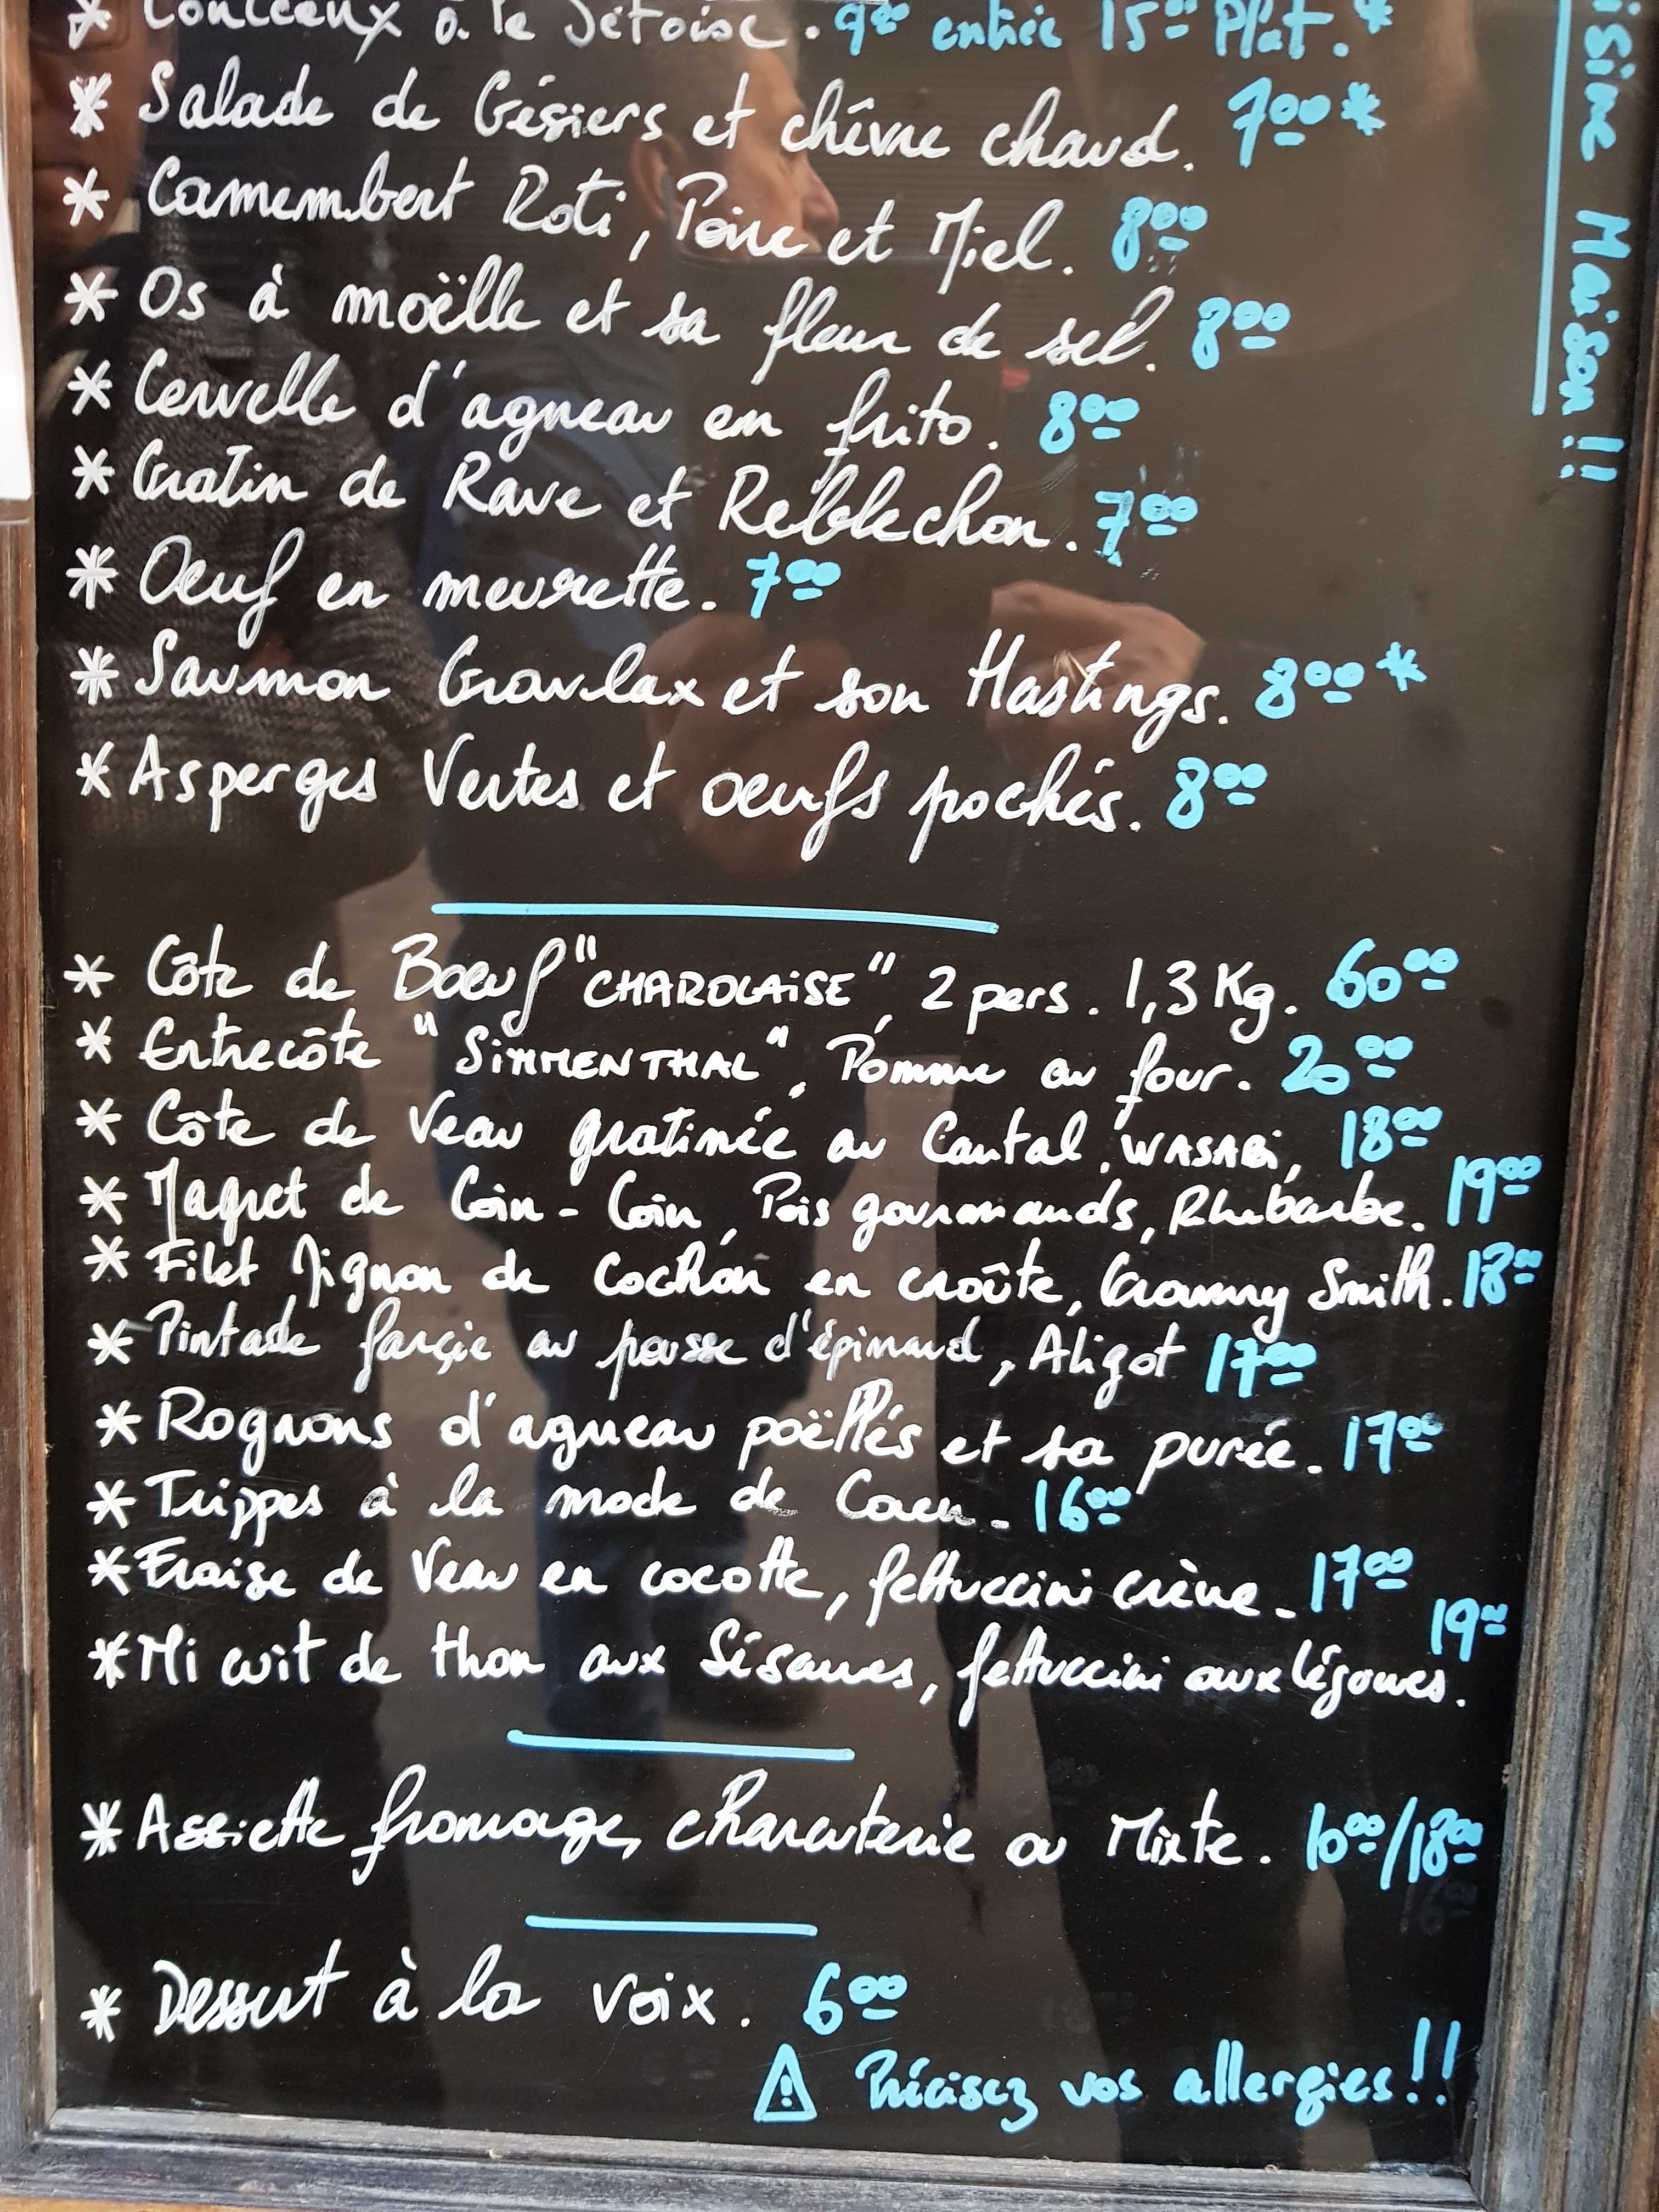 * Couteaux à la Sètoise. 9 00 entrée 15 00 Plat. *
* Salade de Gésiers et chêvre chaud. 7 00 *
* Camembert Roti, Poire et Miel. 8 00
* Os à moëlle et sa fleur de sel. 8 00
* Cervelle d'agneau en frito. 8 00
* Gratin de Rave et Reblechon. 7 00
* Oeuf en meurette. 7 00
* Saumon Gravlax et son Hastings. 8 00 *
* Asperges Vertes et oeufs pochés. 8 00
* Côte de Boeuf "CHAROLAiSE", 2 pers. 1,3 Kg. 60 00
* Entrecôte "SiMMENTHAL", Pomme au four. 20 00
* Côte de Veau gratinée au Cantal, WASABi, 18 00
* Magret de Coin-Coin, Pois gourmands, Rhubarbe. 19 00
* Filet Mignon de Cochon en croûte, Granny Smith. 18 00
* Pintade farçie au pousse d'épinard, Aligot 17 00
* Rognons d'agneau poëllés et sa purée. 17 00
* Trippes à la mode de Caen. 16 00
* Fraise de Veau en cocotte, fettuccini crème. 17 00
* Mi cuit de thon aux Sésames, fettuccini aux légumes. 19 00
* Assiette fromage, charcuterie ou Mixte. 10 00/18 00
* Dessert à la voix. 6 00
⚠ Précisez vos allergies!!
Maison!!